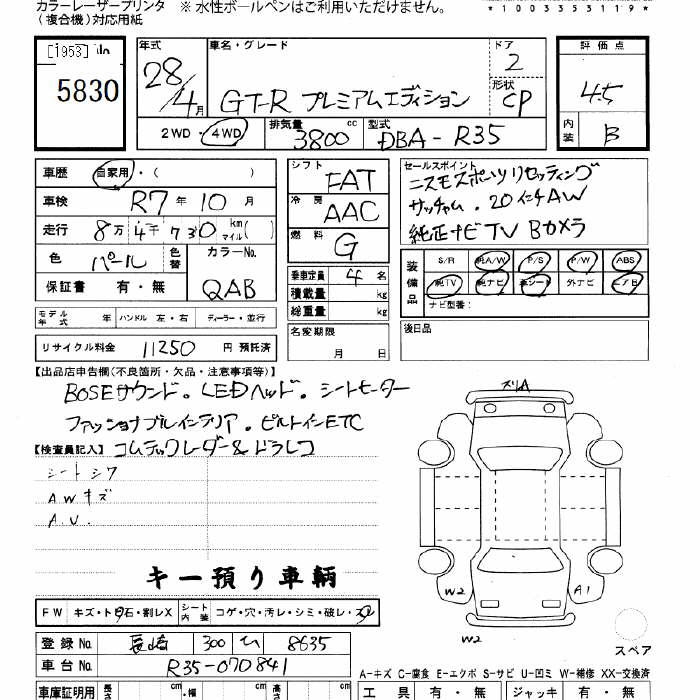 カラーレーザープリンタ ※ 水性ボールペンはご利用いただけません。
(複合機)対応用紙
*1003353119*
[1953]
5830
年式 28/4月
車名・グレード GT-R プレミアムエディション
ドア 2
形状 CP
2WD・4WD 排気量 3800 cc 型式 DBA-R35
評価点 4.5
内装 B
車歴 自家用・( )
車検 R7年10月
走行 8万4千730 km マイル( )
色 パール 色替 カラーNo. QAB
保証書 有・無
シフト FAT
冷房 AAC
燃料 G
乗車定員 4 名
積載量 kg
総重量 kg
セールスポイント
ニスモスポーツリセッティング
サッチャム. 20インチAW
純正ナビTV Bカメラ
装備品 S/R 純A/W P/S P/W ABS
純TV 純ナビ 革シート 外ナビ エアB
ナビ型番:
モデル年式 年 ハンドル 左・右 ディーラー・並行
名変期限 月 日
後日品
リサイクル料金 11250 円 預託済
【出品店申告欄(不良箇所・欠品・注意事項等)】
BOSEサウンド. LEDヘッド. シートヒーター
ファッショナブルインテリア. ビルトインETC
コムテックレーダー&ドラレコ
【検査員記入】
シートシワ
AWキズ
ズリA
W2
A1
W2
キー預り車輌
FW キズ・ト石・割レX シート内装 コゲ・穴・汚レ・シミ・破レ・スレ
登録No. 長崎 300 8635
車台No. R35-070841
スペア
A-キズ C-腐食 E-エクボ S-サビ U-凹ミ W-補修 XX-交換済
車庫証明用 長さ cm 幅 cm cm
工具 有・無 ジャッキ 有・無